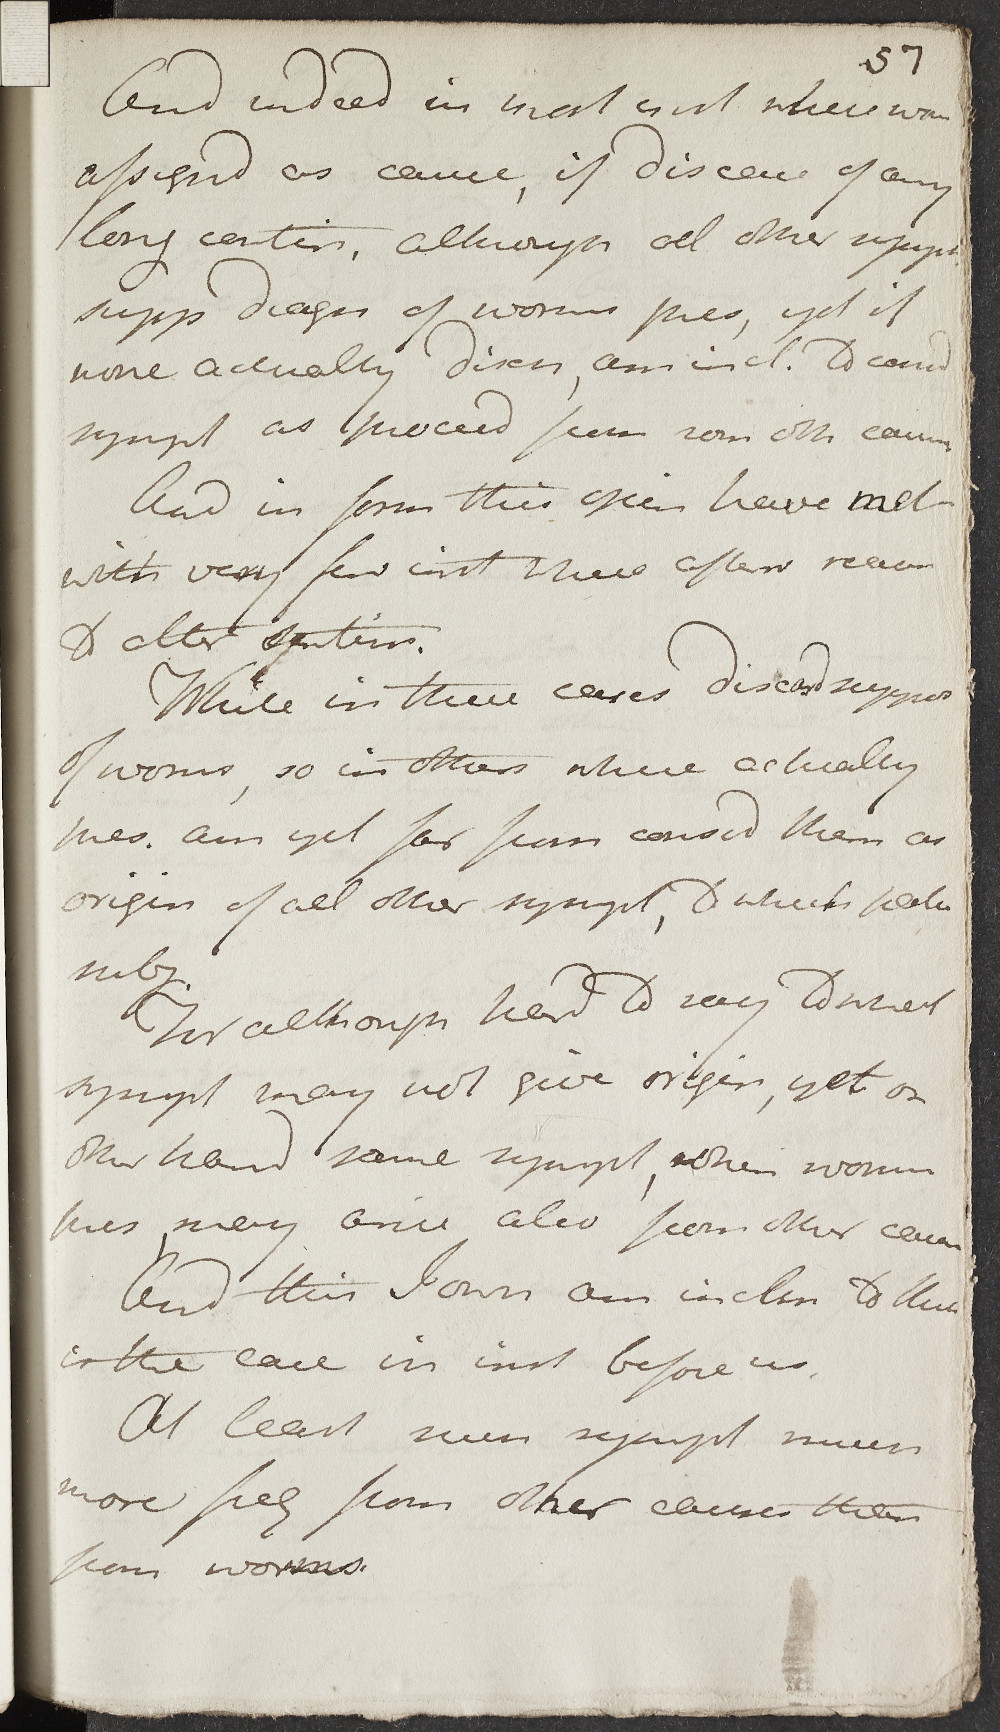 57
And indeed in most inst where wor
assignd as cause, if disease of any
long contin, although all other sympt
supp diagn of worms pres, yet if
none actually discr, am incl. to consid
sympt as proceed from som oth caus
And in form this opin have met
with very few inst where after reason
to alter sentim.
While in these cases discard suppos
of worms, so in others where actually
pres. am yet far from consid them as
origin of all other sympt, to which patien
subj.
For although hard to say to what
sympt may not give origin, yet on
other hand same sympt, when worms
pres, may arise also from other caus
And this I own am inclin to think
is the case in inst before us.
At least such sympt much
more freq from other causes than
from worms.